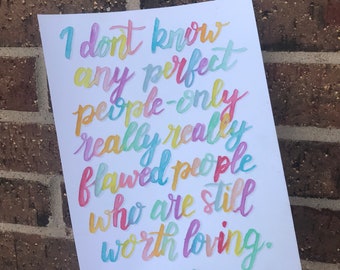 I dont know
any perfect
people-only
really really
flawed people
who are still
worth loving.